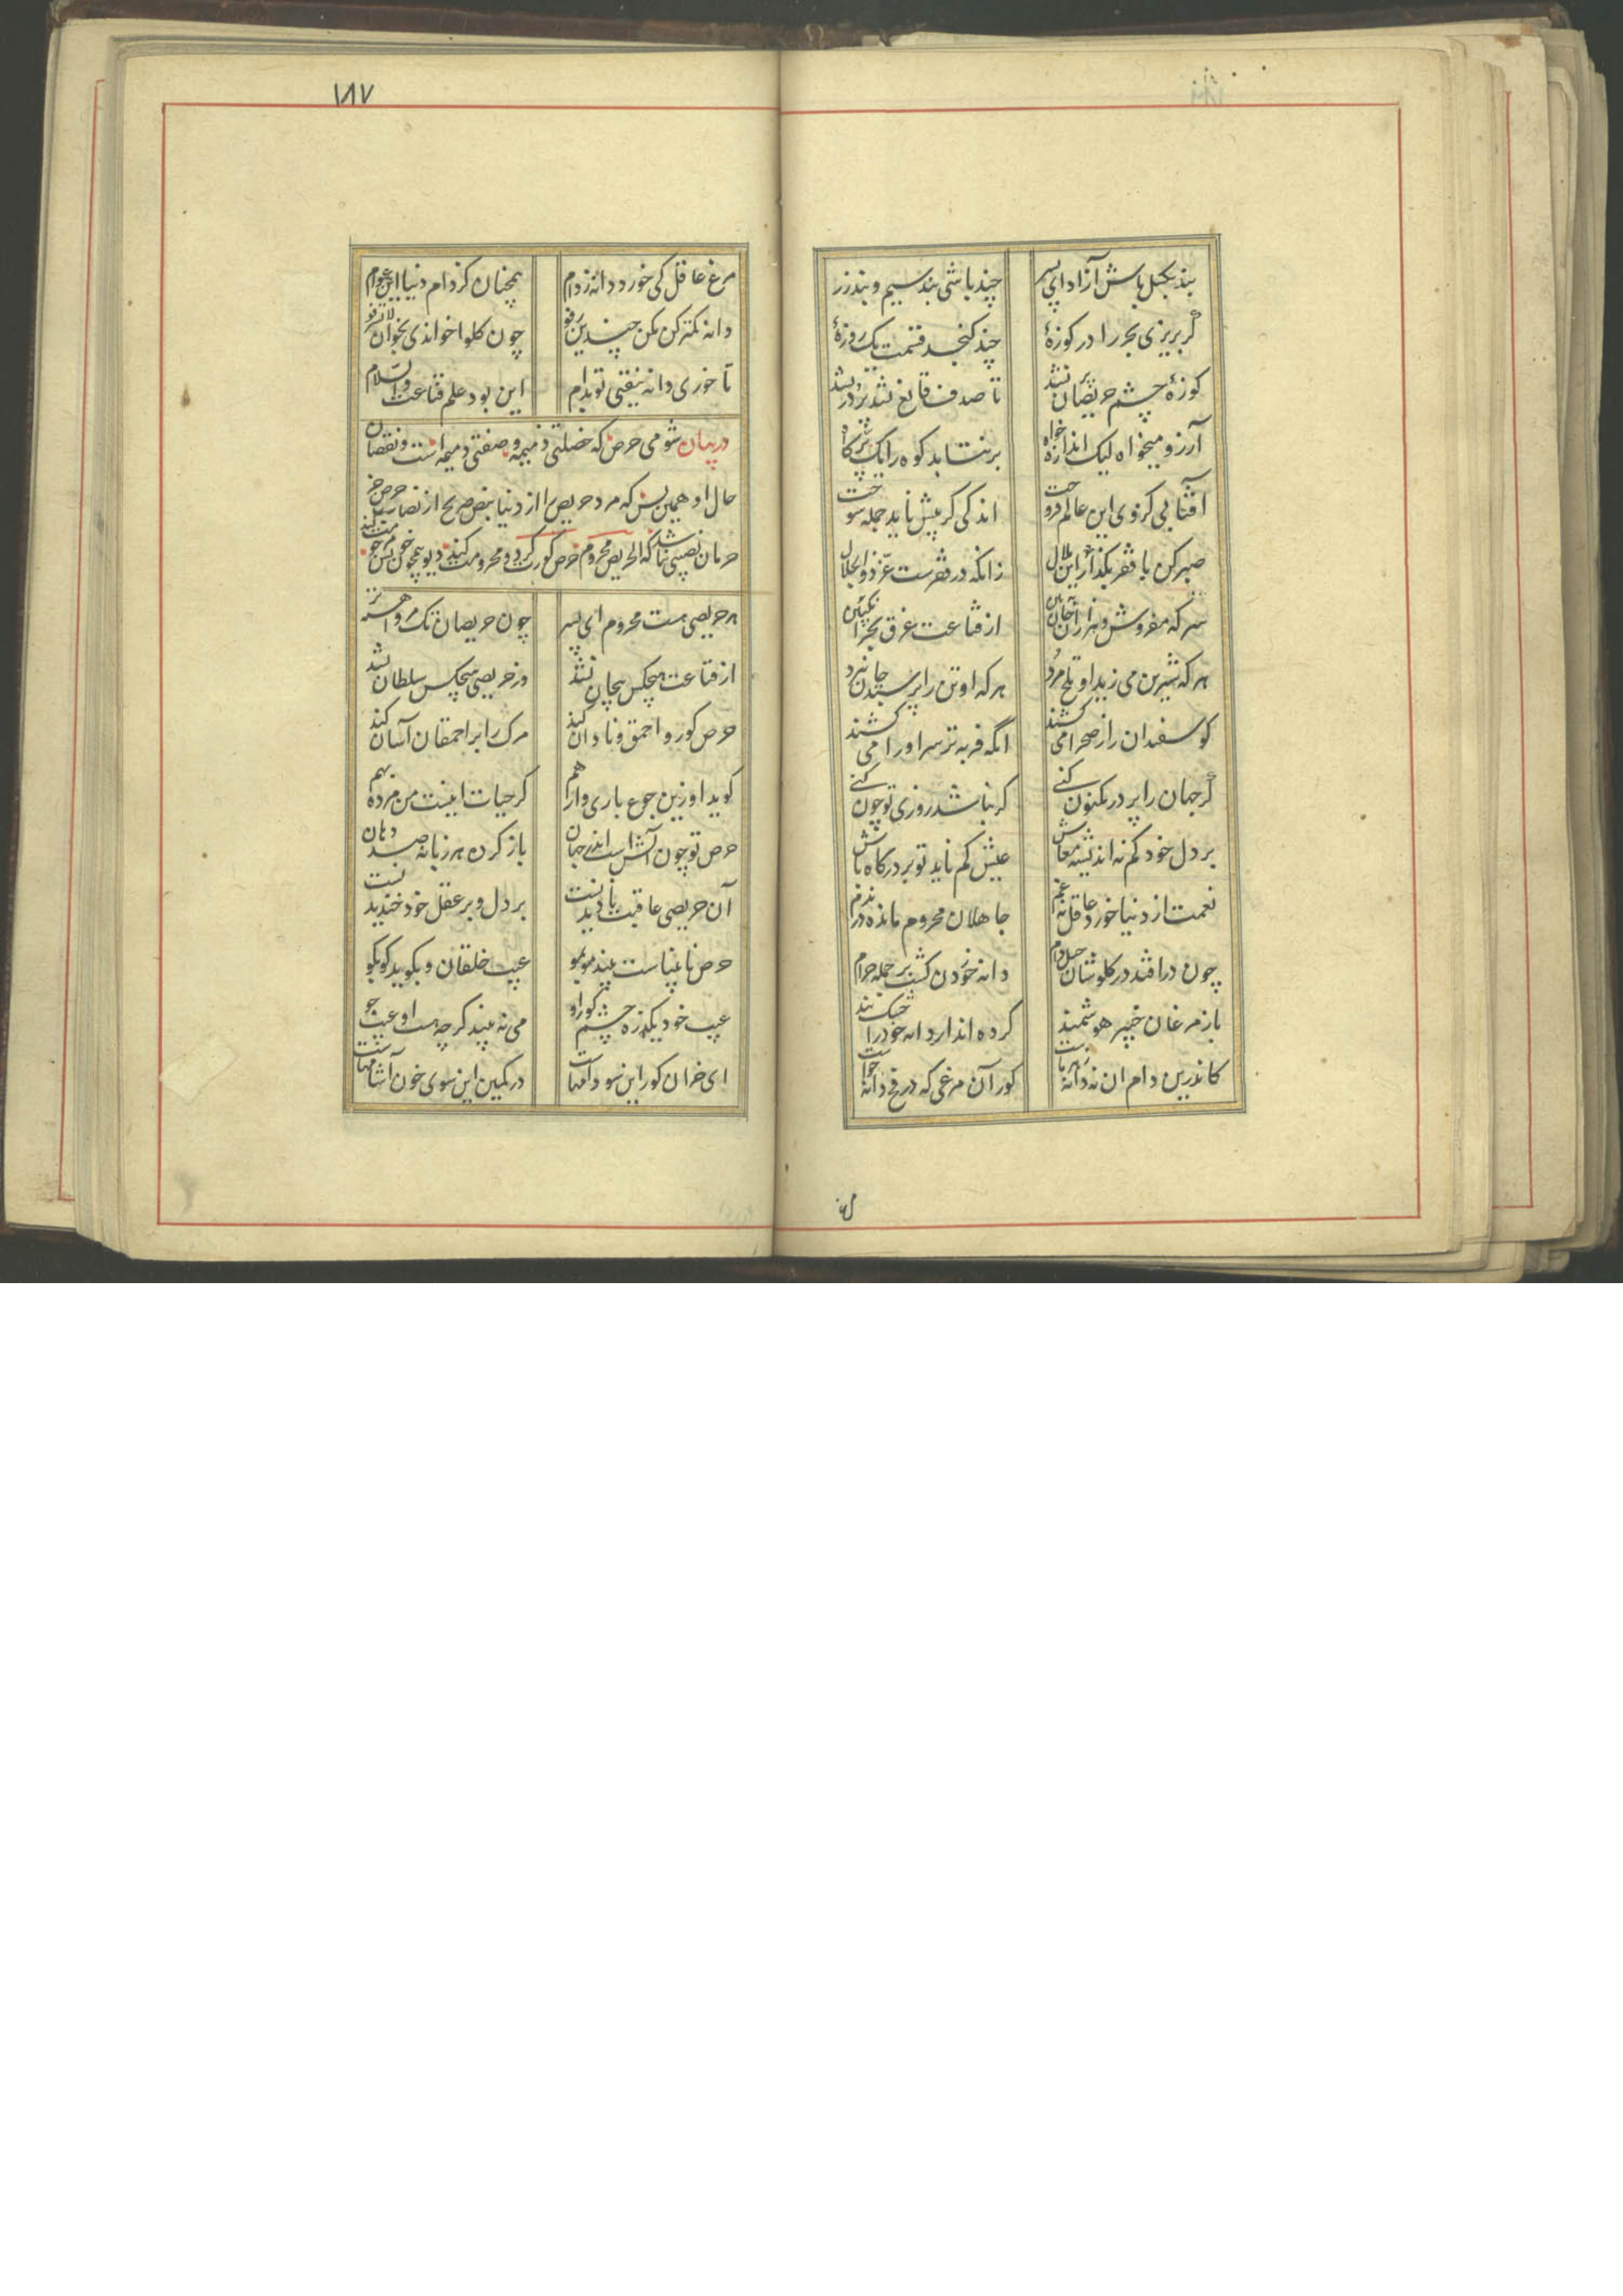 بند بگسل باش آزاد ای پسر چند باشی بند سیم و بند زر
گر بریزی بحر را در کوزهٔ چند گنجد قسمت یک روزهٔ
کوزهٔ چشم حریصان پر نشد تا صدف قانع نشد پر در نشد
آرزو میخواه لیک اندازه خواه برنتابد کوه را یک برگ کاه
آفتابی کزوی این عالم فروخت اندکی گر پیش آید جمله سوخت
صبر کن با فقر و بگذار این ملال زانکه در فقرست عز ذوالجلال
سرکه مفروش و هزاران جان ببین از قناعت غرق بحر انگبین
هرکه شیرین می زید او تلخ مرد هرکه او تن را پرستد جان نبرد
گوسفندان را ز صحرا می کشند انکه فربه تر سر او را می کشند
گر جهان را پر در مکنون کنی گر نباشد روزی تو چون کنی
بر دل خود کم نه اندیشه معاش عیش کم ناید تو بر درگاه باش
نعمت از دنیا خورد عاقل نه غم جاهلان محروم مانده در ندم
چون درافتد در گلوشان حبل دام دانه خوردن گشت بر جمله حرام
باز مرغان خبیر هوشمند کرده اند از دانه خود را خشک بند
کاندرین دام ان نه دانه هاست کور آن مرغی که در فخ دانه خواست
۱۸۷
مرغ عاقل کی خورد دانه ز دام همچنان کز دام دنیا این عوام
دانه کمتر کن مکن چندین رفو چون کلوا خواندی بخوان لا تسرفوا
تا خوری دانه نیفتی تو بدام این بود علم قناعت والسلام
در بیان شومی حرص که خصلتی ذمیمه و صفتی دمیمه است و نقصان
حال او همین بس که مرد حریص را از دنیا بنص صریح از نصاب حرص جز
حرمان نصیبی نباشد که الحریص محروم حرص کورت کرد و محرومت کند دیو همچون خویش مرجومت کند
هر حریصی هست محروم ای پسر چون حریصان تک مرو اهسته تر
از قناعت هیچکس بیجان نشد وز حریصی هیچکس سلطان نشد
حرص کور و احمق و نادان کند مرگ را بر احمقان آسان کند
گوید او زین جوع باری وارهم گر حیات اینست من مرده بهم
حرص تو چون آتش است اندر جهان باز کرده هر زبانه صد دهان
آن حریصی عاقبت نادیدنست بر دل و بر عقل خود خندیدنست
حرص نابیناست بیند مو بمو عیب خلقان و بگوید کو بکو
عیب خود یکذره چشم کور او می نه بیند گرچه هست او عیب جو
ای خران کور این سو دامهاست در کمین این سوی خون آشامهاست